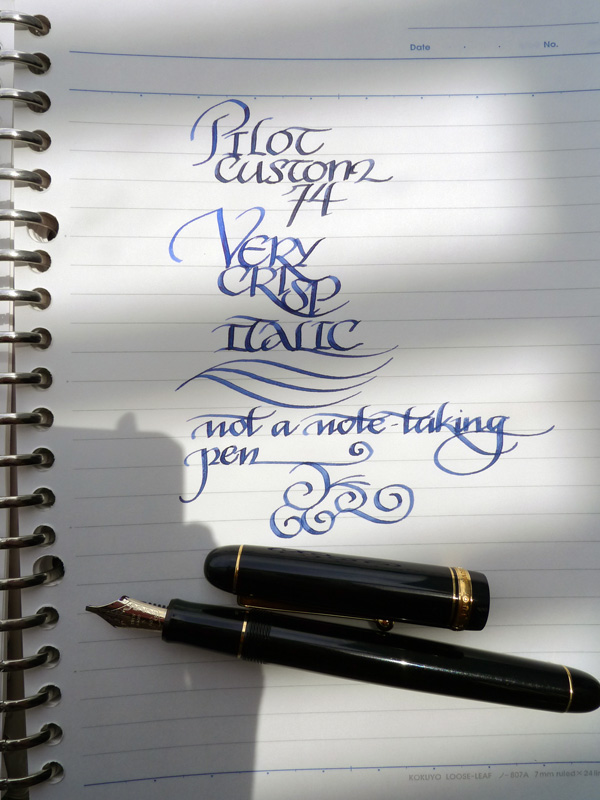 Date . . . No.
Pilot
Custom
74
Very
Crisp
Italic
not a note-taking
pen
KOKUYO LOOSE-LEAF ノ-807A 7mm ruled